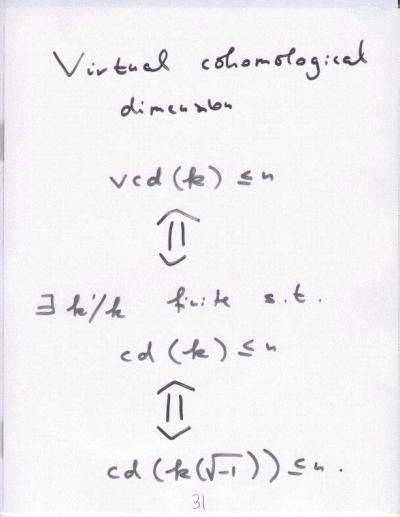 Virtual cohomological
dimension
vcd (k) ≤ n
⇕
∃ k'/k finite s.t.
cd (k) ≤ n
⇕
cd (k(√-1)) ≤ n.
31